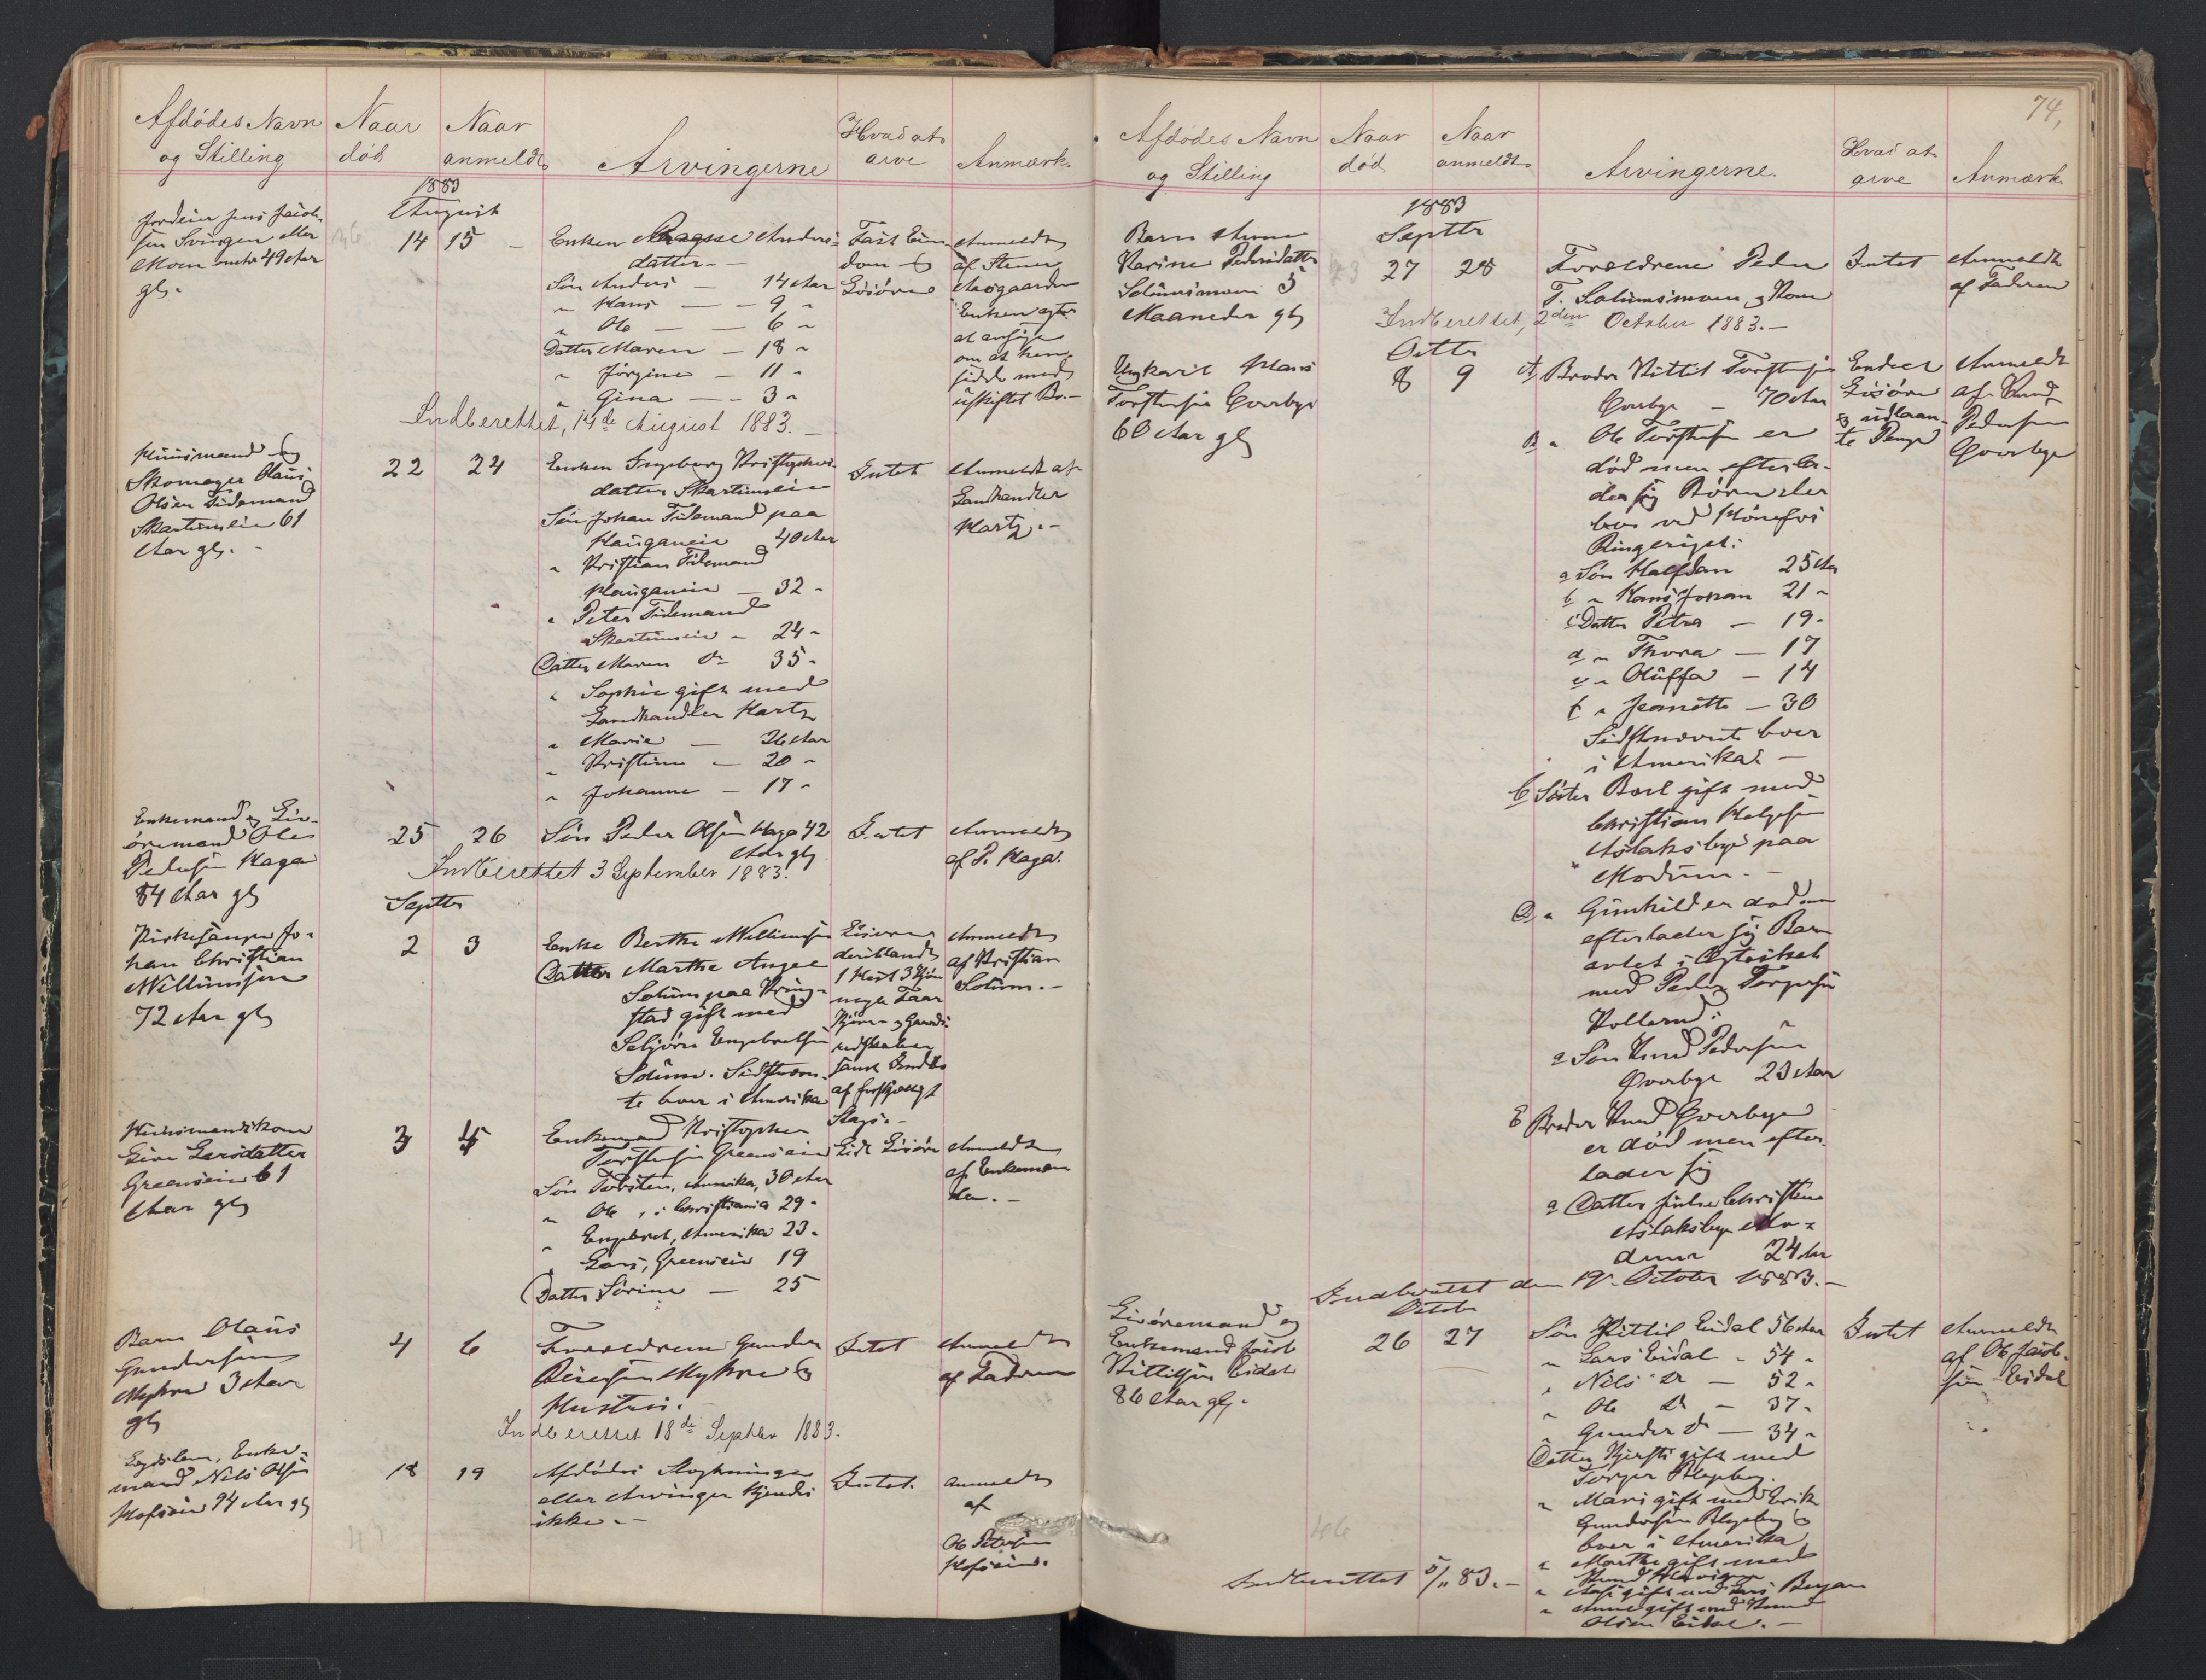 Afdødes Navn og Stilling
Naar død
Naar anmeldt
Arvingerne
Hvad at arve
Anmærk.
1883
August
Jordeier Jens Jacob-
sen Svingen eller
Moen omtr 49 Aar
gl.
14 15
Enken Andersdatter
Sön Anders — 14 Aar
" Hans — 9 "
" Ole — 6 "
Datter Maren — 18 "
" Jörgine — 11 "
" Gina — 3 "
Fast Eien-
dom og
Lösöre
Anmeldt
af Steener
Aasgaarden
Enken agter
at ansöge
om at hen-
sidde med
uskiftet Bo.-
Indberettet, 14de August 1883.
Huusmand og
Skomager Olaus
Olsen Tidemand
61
Aar gl.
22 24
Enken Ingeborg Kristophers-
datter
Sön Johan Tidemand paa
Hauganeie 40 Aar
" Kristian Tidemand
Hauganeie — 32 "
" Peter Tidemand
— 24 "
Datter Maren Do 35 "
" Sophie gift med
Landhandler Hartz
" Marie — 26 Aar
" Kristine — 20 "
" Johanne — 17 "
Intet
Anmeldt af
Landhandler
Hartz.-
Enkemand og Liv-
öremand Ole
Pedersen Haga
84 Aar gl
25 26
Sön Peder Olsen Haga 42
Aar gl
Intet
Anmeldt
af P. Haga.
Indberettet 3 September 1883.
Septbr
Kirkesanger Jo-
han Christian
Willumsen
72 Aar gl
2 3
Enke Berthe Willumsen
Datter Marthe Angel
Solum paa Kring-
stad gift med
Engebretsen
Solum. Sidstnævn-
te boer i Amerika
Lösöre
deriblandt
1 Hest 3 Kjör
nogle Faar
Kjöre- og Gaards-
redskaber
samt Indbo
af forskjælligt
Slags.-
Anmeldt
af Kristian
Solum.-
Huusmandskone
Live Larsdatter
Greenseie 61
Aar gl
3 5
Enkemand Kristopher
Torstensen Greenseie
Sön Torsten, Amerika, 30 Aar
" Ole, i Christiania 29 "
" Engebret, Amerika 23 "
" Lars, Greenseie 19
Datter Sörine — 25
Lidt Lösöre
Anmeldt
af Enkeman-
den.-
Barn Olaus
Gundersen
Myhre 3 Aar
gl
4 6
Forældrene Gunder
Reiersen Myhre og
Hustru.
Intet
Anmeldt
af Faderen
Indberettet 18de Septbr 1883.
Lægdslem, Enke-
mand Nils Olsen
94 Aar gl
18 19
Afdödes Slægtninge
eller Arvinger kjendes
ikke.-
Intet.
anmeldt
af
Ole Petersen
74,
Afdødes Navn og Stilling
Naar død
Naar anmeldt
Arvingerne.
Hvad at arve
Anmærk.
1883
Septbr
Barn Anne
Karine Pedersdatter
Solumsmoen 5
Maaneder gl
27 28
Forældrene Peder
T. Solumsmoen og Kone
Intet
Anmeldt
af Faderen
Indberettet, 2den October 1883.-
Octbr
Ungkarl Hans
Torstensen Overbye
60 Aar gl
8 9
A Broder Kittil Torstensen
Overbye — 70 Aar
B " Ole Torstensen er
död men efterla-
der sig Börn der
boe ved Hönefos
Ringeriget:
a Sön Halfdan 25 Aar
b " Hans Johan 21 "
c Datter Petra — 19 "
d " Thora — 17
e " Oluffa — 14
f " Jeanette — 30
Sidstnævnte boer
i Amerika. —
C Söster Boel gift med
Christian Helgesen
Aslaksbye paa
Modum.-
D " Gunhild er död men
efterlader sig Barn
avlet i Ægteskab
med Peder Torgersen
Kollerud:
a Sön Knud Pedersen
Overbye 23 Aar
E Broder Knud Overbye
er död men efter-
lader sig
a Datter Christine
Aslaksbye Mo-
dum 24 Aar
Endeel
Lösöre
og udlaan-
te Penge
Anmeldt
af Knud
Pedersen
Overbye
Indberettet den 19. October 1883.-
Octobr
Livöremand og
Enkemand Jacob
Kittilsen Eidal
86 Aar gl.
26 27
Sön Kittil Eidal 56 Aar
" Lars Eidal - 54 "
" Nils Do — 52 "
" Ole Do — 37 "
" Gunder Do — 34 "
Datter Kjersti gift med
Torger
" Mari gift med Erik
Gundersen og
boer i Amerika
" Marthe gift med
Knud
" gift med Lars Bergan
" Anne gift med Knud
Olsen Eidal.-
Intet
Anmeldt
af Ole Jacob-
sen Eidal
Indberettet 5/11 83.-